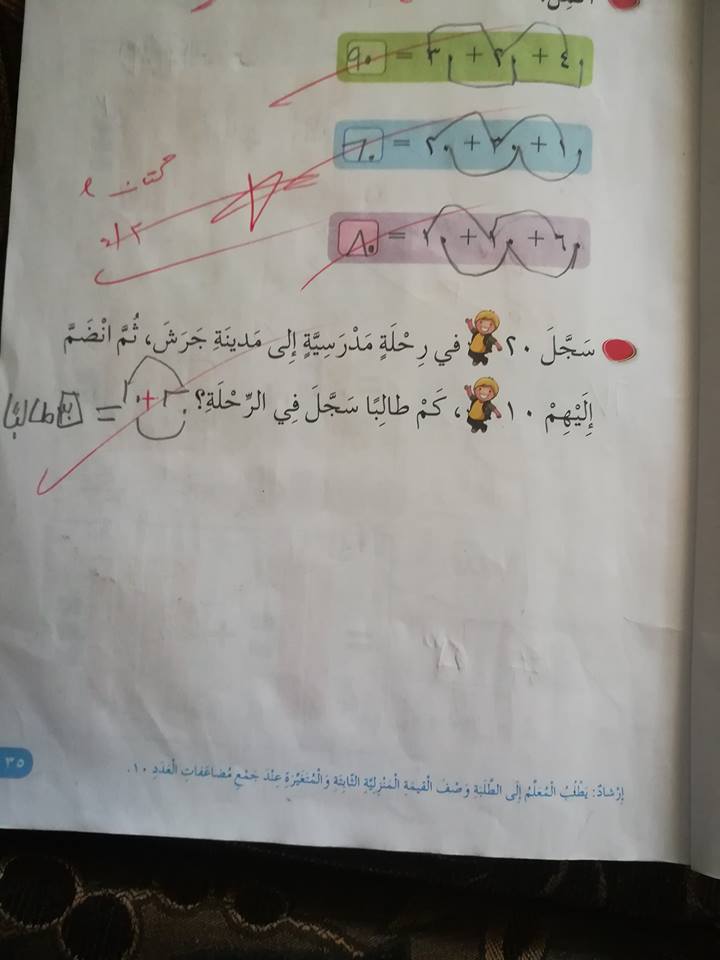 أكمل:
٤٠ + ٢٠ + ٣٠ = ٩٠
١٠ + ٣٠ + ٢٠ = ٦٠
٦٠ + ١٠ + ١٠ = ٨٠
سَجَّلَ ٢٠ في رِحْلَةٍ مَدْرَسِيَّةٍ إِلى مَدينَةِ جَرَشَ، ثُمَّ انْضَمَّ
إِلَيْهِمْ ١٠، كَمْ طالِبًا سَجَّلَ فِي الرِّحْلَةِ؟ ٢٠ + ١٠ = ٣٠ طالبًا
٣٥
إرْشادٌ: يَطْلُبُ الْمُعَلِّمُ إِلَى الطَّلَبَةِ وَصْفَ الْقيمَةِ الْمَنْزِلِيَّةِ الثّابِتَةِ وَالْمُتَغَيِّرَةِ عِنْدَ جَمْعِ مُضاعَفاتِ الْعَدَدِ ١٠.